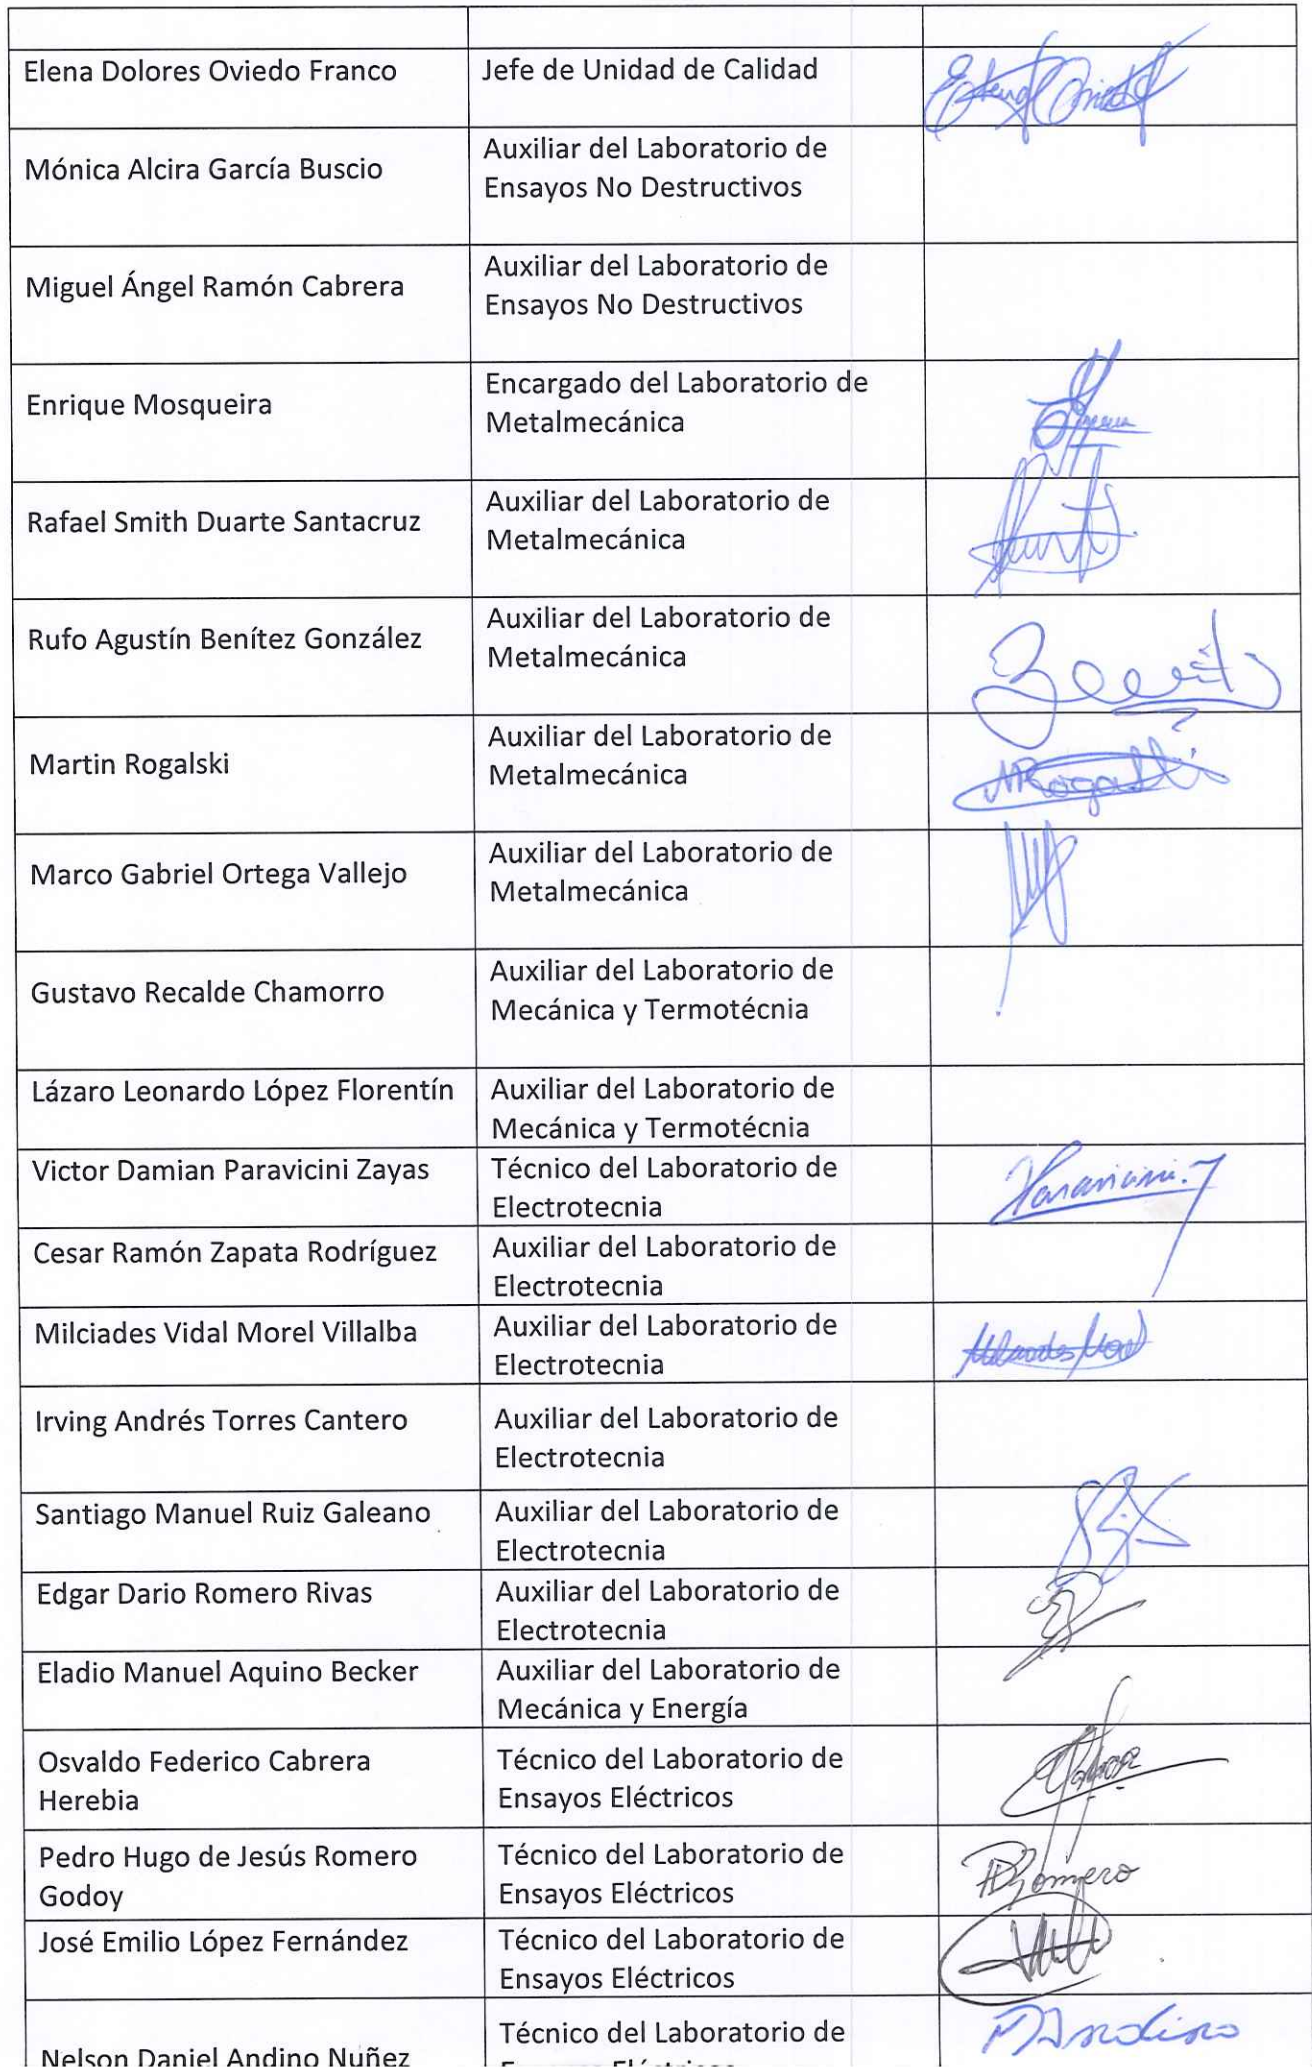 Elena Dolores Oviedo Franco
Jefe de Unidad de Calidad
Mónica Alcira García Buscio
Auxiliar del Laboratorio de
Ensayos No Destructivos
Miguel Ángel Ramón Cabrera
Auxiliar del Laboratorio de
Ensayos No Destructivos
Enrique Mosqueira
Encargado del Laboratorio de
Metalmecánica
Rafael Smith Duarte Santacruz
Auxiliar del Laboratorio de
Metalmecánica
Rufo Agustín Benítez González
Auxiliar del Laboratorio de
Metalmecánica
Martin Rogalski
Auxiliar del Laboratorio de
Metalmecánica
Marco Gabriel Ortega Vallejo
Auxiliar del Laboratorio de
Metalmecánica
Gustavo Recalde Chamorro
Auxiliar del Laboratorio de
Mecánica y Termotécnia
Lázaro Leonardo López Florentín
Auxiliar del Laboratorio de
Mecánica y Termotécnia
Victor Damian Paravicini Zayas
Técnico del Laboratorio de
Electrotecnia
Cesar Ramón Zapata Rodríguez
Auxiliar del Laboratorio de
Electrotecnia
Milciades Vidal Morel Villalba
Auxiliar del Laboratorio de
Electrotecnia
Irving Andrés Torres Cantero
Auxiliar del Laboratorio de
Electrotecnia
Santiago Manuel Ruiz Galeano
Auxiliar del Laboratorio de
Electrotecnia
Edgar Dario Romero Rivas
Auxiliar del Laboratorio de
Electrotecnia
Eladio Manuel Aquino Becker
Auxiliar del Laboratorio de
Mecánica y Energía
Osvaldo Federico Cabrera
Herebia
Técnico del Laboratorio de
Ensayos Eléctricos
Pedro Hugo de Jesús Romero
Godoy
Técnico del Laboratorio de
Ensayos Eléctricos
José Emilio López Fernández
Técnico del Laboratorio de
Ensayos Eléctricos
Nelson Daniel Andino Nuñez
Técnico del Laboratorio de